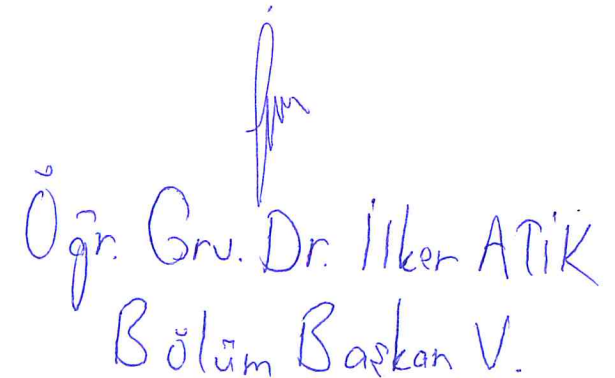 Öğr. Grv. Dr. İlker ATİK
Bölüm Başkan V.